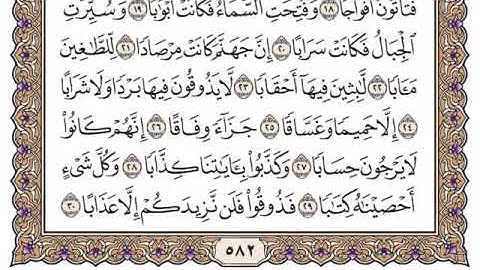 فَتَأْتُونَ أَفْوَاجًا ۝١٨ وَفُتِحَتِ السَّمَاءُ فَكَانَتْ أَبْوَابًا ۝١٩ وَسُيِّرَتِ
الْجِبَالُ فَكَانَتْ سَرَابًا ۝٢٠ إِنَّ جَهَنَّمَ كَانَتْ مِرْصَادًا ۝٢١ لِّلطَّاغِينَ
مَـَٔابًا ۝٢٢ لَّابِثِينَ فِيهَا أَحْقَابًا ۝٢٣ لَّا يَذُوقُونَ فِيهَا بَرْدًا وَلَا شَرَابًا
۝٢٤ إِلَّا حَمِيمًا وَغَسَّاقًا ۝٢٥ جَزَاءً وِفَاقًا ۝٢٦ إِنَّهُمْ كَانُوا
لَا يَرْجُونَ حِسَابًا ۝٢٧ وَكَذَّبُوا بِـَٔايَاتِنَا كِذَّابًا ۝٢٨ وَكُلَّ شَيْءٍ
أَحْصَيْنَاهُ كِتَابًا ۝٢٩ فَذُوقُوا فَلَن نَّزِيدَكُمْ إِلَّا عَذَابًا ۝٣٠
٥٨٢